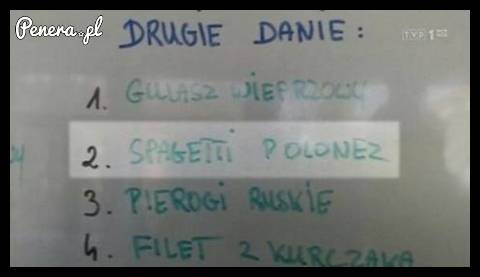 Penera.pl
DRUGIE DANIE:
TVP1 HD
1. GULASZ WIEPRZOWY
2. SPAGETTI POLONEZ
3. PIEROGI RUSKIE
4. FILET Z KURCZAKA